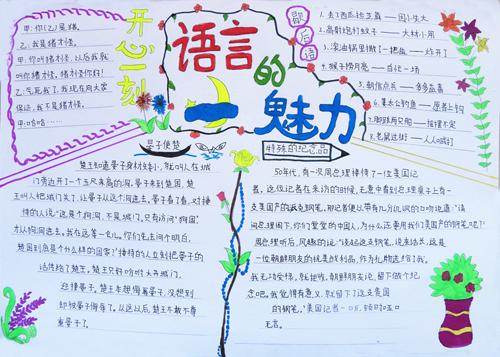 开心一刻
甲:你(乙)是猪。
乙:我是猪才怪。
甲:你叫猪才怪,以后我就
叫你猪才怪,猪才怪你好!
乙:气死我了,我现在向大家
保证,我不是猪才怪。
甲:哈哈……
语言的魅力
歇后语
1.丢了西瓜捡芝麻——因小失大
2.高射炮打蚊子——大材小用
3.滚油锅里撒了一把盐——炸开了
4.猴子捞月亮——白忙一场
5.韩信点兵——多多益善
7.脚踩两只船——摇摆不定
8.老鼠过街——人人喊打
晏子使楚
楚王知道晏子身材矮小,就叫人在城
门旁边开了一个五尺来高的洞。晏子来到楚国,楚
王叫人把城门关了,让晏子从这个洞进去。晏子看了看,对接
待的人说:“这是个狗洞,不是城门。只有访问“狗国”
才从狗洞进去。我在这等一会儿。你们先去问个明白,
楚国到底是个什么样的国家?”接待的人立刻把晏子的
话传给了楚王。楚王只好吩咐大开城门,
迎接晏子。楚王本想侮辱晏子,没想到
却被晏子侮辱了。从这以后,楚王不敢不尊
重晏子了。
特殊的纪念品
50年代,有一次周总理接待了一位美国记
者。这位记者在采访的时候,无意中看到总理桌子上有一
支美国产的派克钢笔。那记者便以带有几分讥讽的口吻说道:“请
问总理阁下,你们堂堂的中国人,为什么还要用我们美国产的钢笔呢?”
周总理听后,风趣的说:“谈起这支钢笔,说来话长,这是
一位朝鲜朋友的抗美战利品,作为礼物送给了我。
我无功受禄,就拒收。朝鲜朋友说,留下做个纪
念吧。我觉得有意义,就留下了这支贵国
的钢笔。”美国记者一听,顿时哑口
无言。